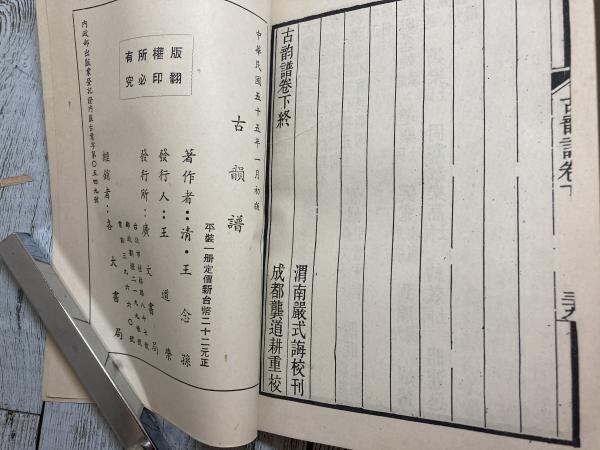 古韵譜卷下
古韵譜卷下終
渭南嚴式誨校刊
成都龔道耕重校
中華民國五十五年一月初版
古韻譜
平裝一册定價新台幣二十二元正
著作者：清・王念孫
發行人：王道榮
發行所：廣文書局
經銷者：各大書局
版權所有
翻印必究
內政部出版業登記證內版台業字第〇五四九號